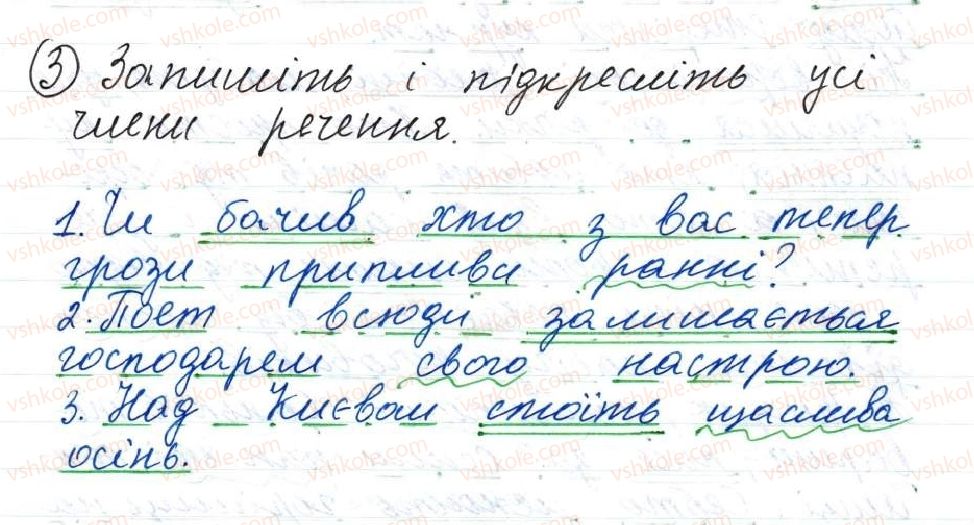 3) Запишіть і підкресліть усі
члени речення.
1. Чи бачив хто з вас тепер
грози припливи ранні?
2. Поет всюди залишається
господарем свого настрою.
3. Над Києвом стоїть щаслива
осінь.